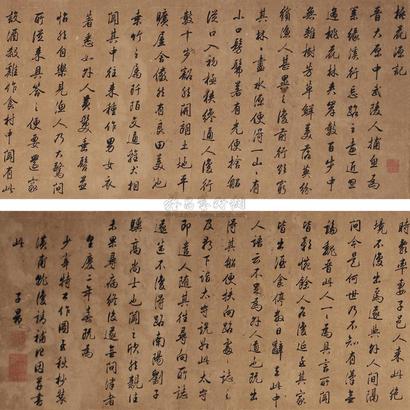 桃花源記
晉太原中武陵人捕魚為
業緣溪行忘路之遠近忽
逢桃花林夾岸數百步中
無雜樹芳草鮮美落英紛
繽漁人甚異之復前行欲窮
其林林盡水源便得一山山有
小口髣髴若有光便捨船
從口入初極狹纔通人復行
數十步豁然開朗土地平
曠屋舍儼然有良田美池
桑竹之屬阡陌交通雞犬相
聞其中往來種作男女衣
著悉如外人黃髮垂髫並
怡然自樂見漁人乃大驚問
所從來具答之便要還家
設酒殺雞作食村中聞有此
時亂率妻子邑人來此絕
境不復出焉遂與外人間隔
問今是何世乃不知有漢無
論魏晉此人一一為具言所聞
皆歎惋餘人各復延至其家
皆出酒食停數日辭去此中
人語云不足為外人道也既出
得其船便扶向路處處誌之
及郡下詣太守說如此太守
即遣人隨其往尋向所誌
遂迷不復得路南陽劉子
驥高尚士也聞之欣然規往
未果尋病終後遂無問津者
皇慶二年春既為
作圖至秋杪裝
潢甫就復請補此因又書
此 子昂